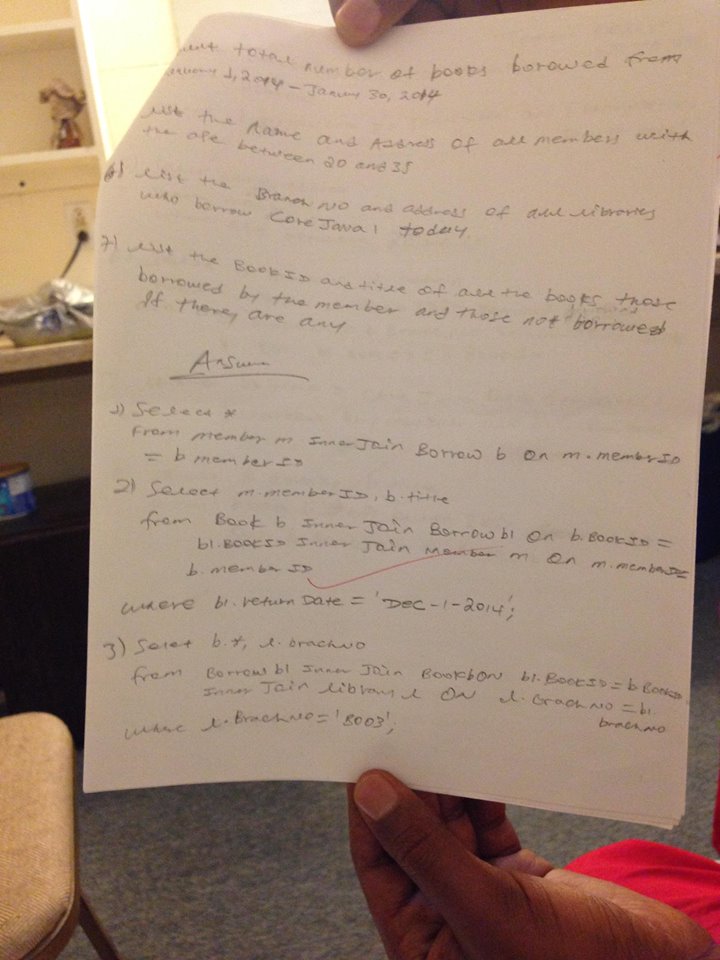 total number of books borowed from
1, 2014 - January 30, 2014
List the Name and Address of all members with
the age between 20 and 35
6) List the Branch NO and address of all libraries
who borrow Core Java 1 today.
7) List the BookID and title of all the books those
borrowed by the member and those not borrowed
If there are any
Answer
1) Select *
From member m Inner Join Borrow b On m.memberID
= b memberID
2) Select m.memberID, b.title
from Book b Inner Join Borrow b1 On b.BOOKID =
b1.BOOKID Inner Join Member m On m.memberID=
b.memberID
where b1.return Date = 'DEC-1-2014';
3) Selet b.*, l.brachNO
from Borrow b1 Inner Join Book b ON b1.BookID = b.BookID
Inner Join library l ON l.brachNO = b1.
brachNO
where l.BrachNO = 'B003';